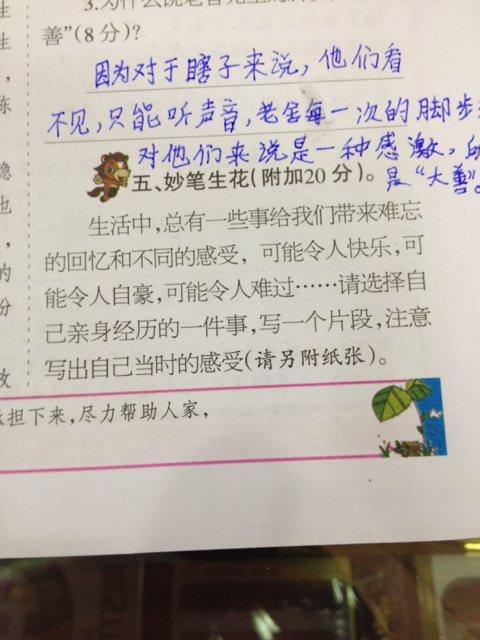 善”(8分)?
因为对于瞎子来说,他们看
不见,只能听声音,老舍每一次的脚步
对他们来说是一种感激,
是“大善”。
五、妙笔生花(附加20分)。
生活中,总有一些事给我们带来难忘
的回忆和不同的感受,可能令人快乐,可
能令人自豪,可能令人难过……请选择自
己亲身经历的一件事,写一个片段,注意
写出自己当时的感受(请另附纸张)。
担下来,尽力帮助人家,